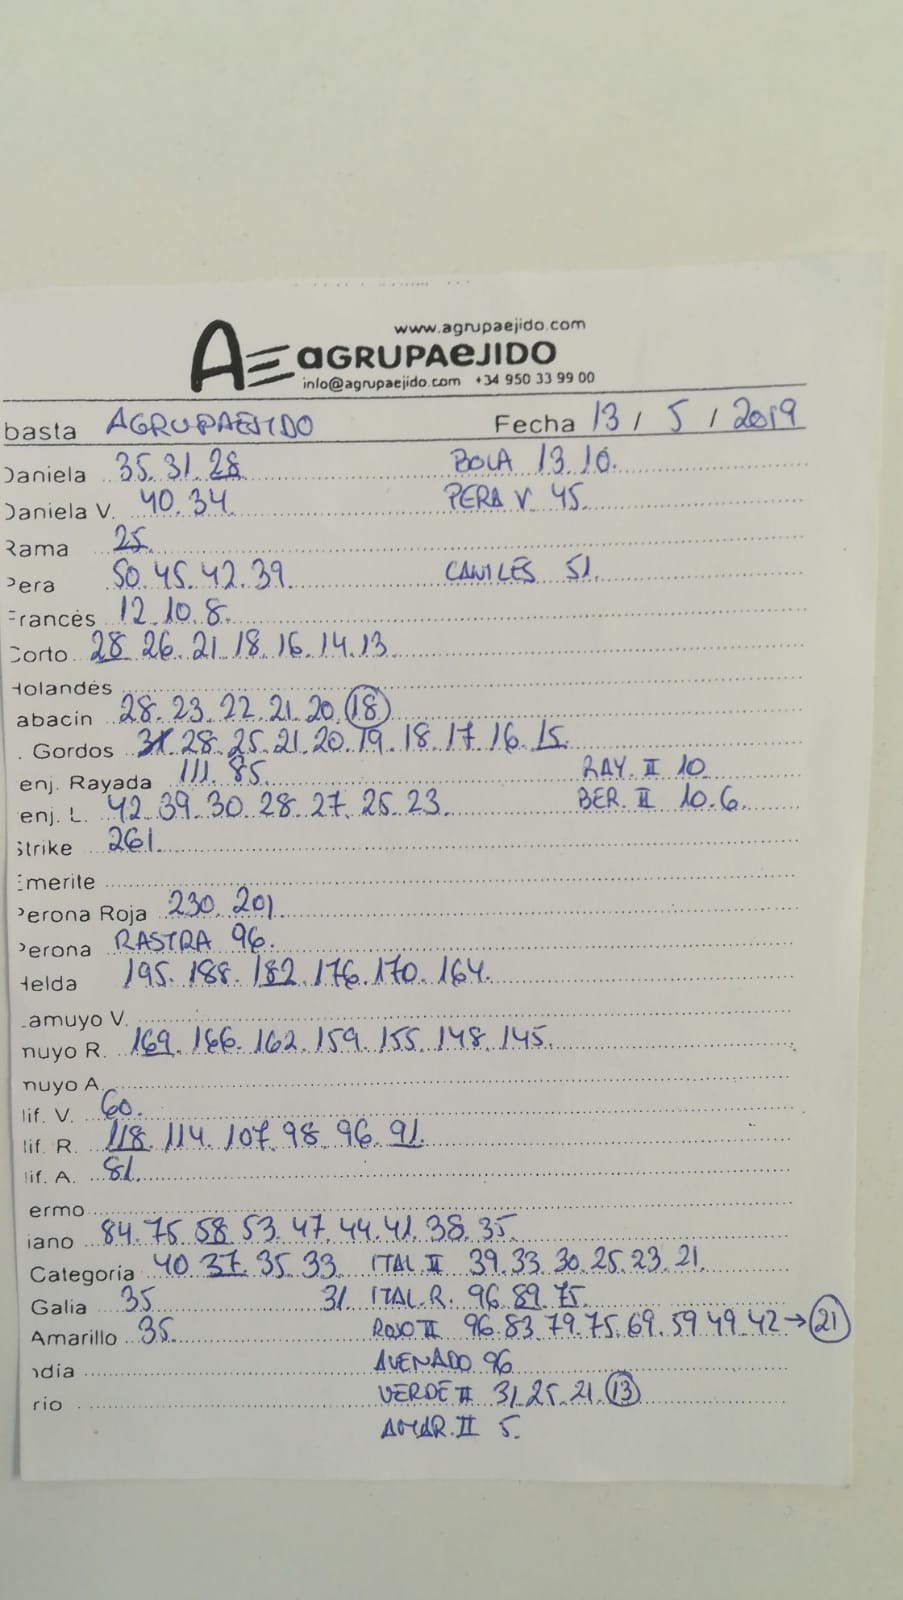 www.agrupaejido.com
AE aGRUPAeJIDO
info@agrupaejido.com +34 950 33 99 00
basta AGRUPAEJIDO Fecha 13 / 5 / 2019
Daniela 35. 31. 28 BOLA 13. 10.
Daniela V. 40. 34. PERA V. 45.
Rama 25.
Pera 50. 45. 42. 39. CANILES 51.
Francés 12. 10. 8.
Corto 28 26. 21. 18. 16. 14. 13.
Holandés
abacin 28. 23. 22. 21. 20. 18
. Gordos 31. 28. 25. 21. 20. 19. 18. 17. 16. 15.
enj. Rayada 111. 85. RAY. II 10
enj. L. 42. 39. 30. 28. 27. 25. 23. BER. II 10. 6.
Strike 261.
Emerite
Perona Roja 230. 201.
Perona RASTRA 96.
Helda 195. 188. 182. 176. 170. 164.
Lamuyo V.
nuyo R. 169. 166. 162. 159. 155. 148. 145.
nuyo A.
lif. V. 60.
lif. R. 118. 114. 107. 98. 96. 91.
lif. A. 81.
ermo
iano 84. 75. 58. 53. 47. 44. 41. 38. 35.
Categoría 40. 37. 35. 33 ITAL II 39. 33. 30. 25. 23. 21.
Galia 35 31 ITAL.R. 96. 89. 75.
Amarillo 35. ROJO II 96. 83. 79. 75. 69. 59 49. 42 → 21
ndia AVENADO 96
rio VERDE II 31. 25. 21. 13
AMAR. II 5.